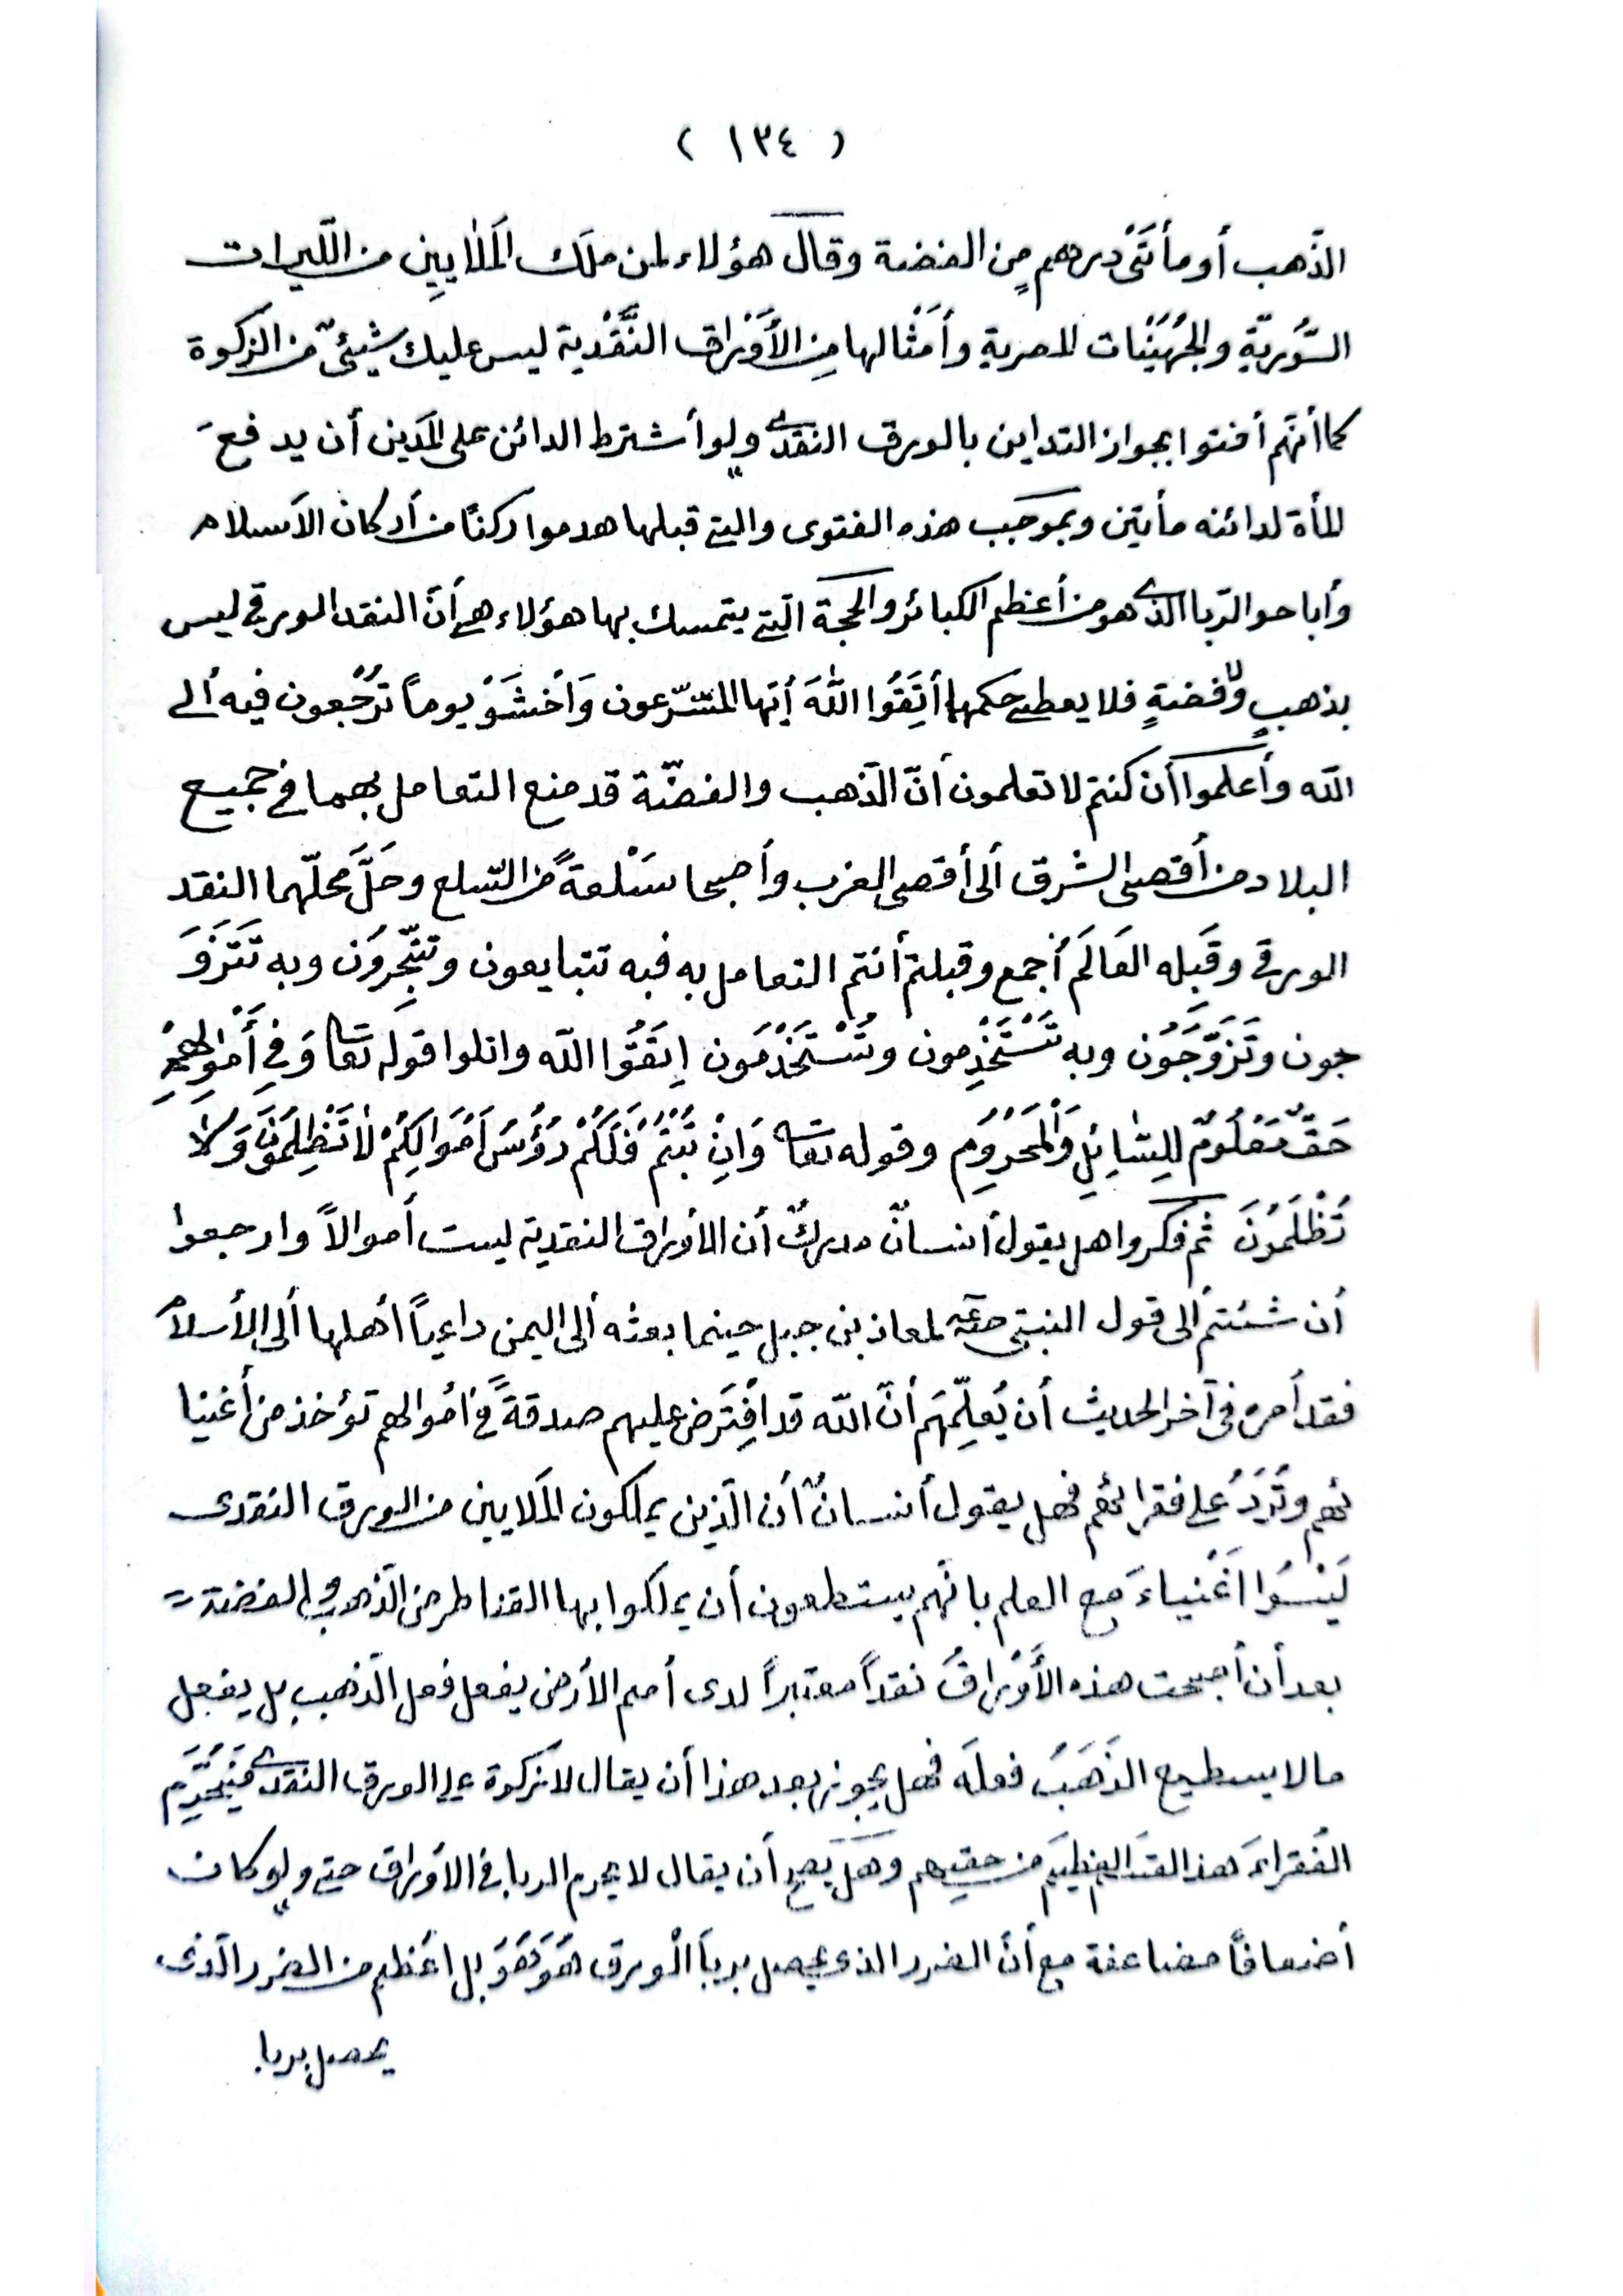 ( ١٣٤ )
الذّهب أو مأتَىْ درهمٍ من الفضة وقال هؤلاء لمن ملَك المَلاٰيينِ من اللّيرات
السُّوريّةِ والجُهَيْنات المصرية وأمَثْالها مِن الأَوْراق النَّقْدية ليس عليك شيئىٌ من الزكوة
كما أنّهم أفتوا بجواز التداين بالورق النقدى ولو أشترط الدائن على المَدين أن يدفعَ
المأة لدائنه مأيتين وبموجَب هذه الفتوى والتى قبلها هدموا ركنًا من أركان الأسلام
وأباحوا الرّبا الذى هو من أعظم الكبائر والحجة التى يتمسك بها هؤلاء هى أنّ النقد الورقى ليس
بذهبٍ ولا فضةٍ فلا يعطى حكمها أتَّقُوا اللّٰهَ أيّها المتشرّعون وَاَخْشَوْ يوماً تُرْجَعون فيه ألى
اللّه وأعلموا أن كنتم لا تعلمون أنّ الذّهب والفضّة قد منع التعامل بهما فى جميع
البلاد من أقصى الشرق ألى أقصى الغرب وأصبحا سَلْعةً من السّلع وحَلَّ محلّهما النقد
الورقى وقَبِله العَالَم أجمع وقبلتم أنتم التعامل به فبه تتبايعون وتتّجِرُون وبه تَتَزَوَ
جون وتَزَوَّجَوُن وبه تَسْتَخْدِمون وتُسْتَخْدَمون اِتَّقُوا اللّه واتلوا قوله تعا وَفِى أَمْوالِهِمْ
حَقٌّ مَعْلُومٌ لِلِسَّاٰئِلِ وَالْمَحْرُومِ وقوله تعا وَاِنْ تُبْتُمْ فَلَكُمْ رُؤُسُ اَمْوَالِكُمْ لاٰ تَظْلِمُونَ وَلاٰ
تُظْلَمُونَ ثم فكروا هل يقول أنسانٌ مدركٌ أن الأوراق النقدية ليست أموالاً وارجعوا
أن شئتم ألى قول النبىّ صلعم لمعاذ بن جبل حينما بعثه ألى اليمن داعياً أهلها ألى الأسلام
فقد أمره فى آخر الحديث أن يُعلِّمَهم أنّ اللّه قد افْتَرض عليهم صدقةً فى أموالهم تؤخذ من أغنيا
ئهم وتُرَدُ على فقرائهم فهل يقول أنسانٌ أن الّذين يملكون المَلايين من الورق النقدى
لَيْسُوا اَغْنياءَ مع العلم بانّهم يستطعون أن يملكوا بها القناطر من الذّهب والفضة
بعد أن أصبحت هذه الأَوْراقُ نقداً معتبراً لدى أمم الأرض يفعل فعل الذّهب بل يفعل
ما لا يسطيع الذَهَبُ فعلَه فهل يجوز بعد هذا أن يقال لا زكوة على الورق النقدى فيَحْرِم
الفُقَراءَ هذا القدَ العظيَم من حقِهم وهَل يَصح أن يقال لا يحرم الربا فى الأوراق حتى ولو كان
أضعافاً مضاعفة مع أنّ الضرر الذى يحصل بربَا الْورق هُوَ هُوَ بل اعْظم من الضرر الّذى
يحصل بربا